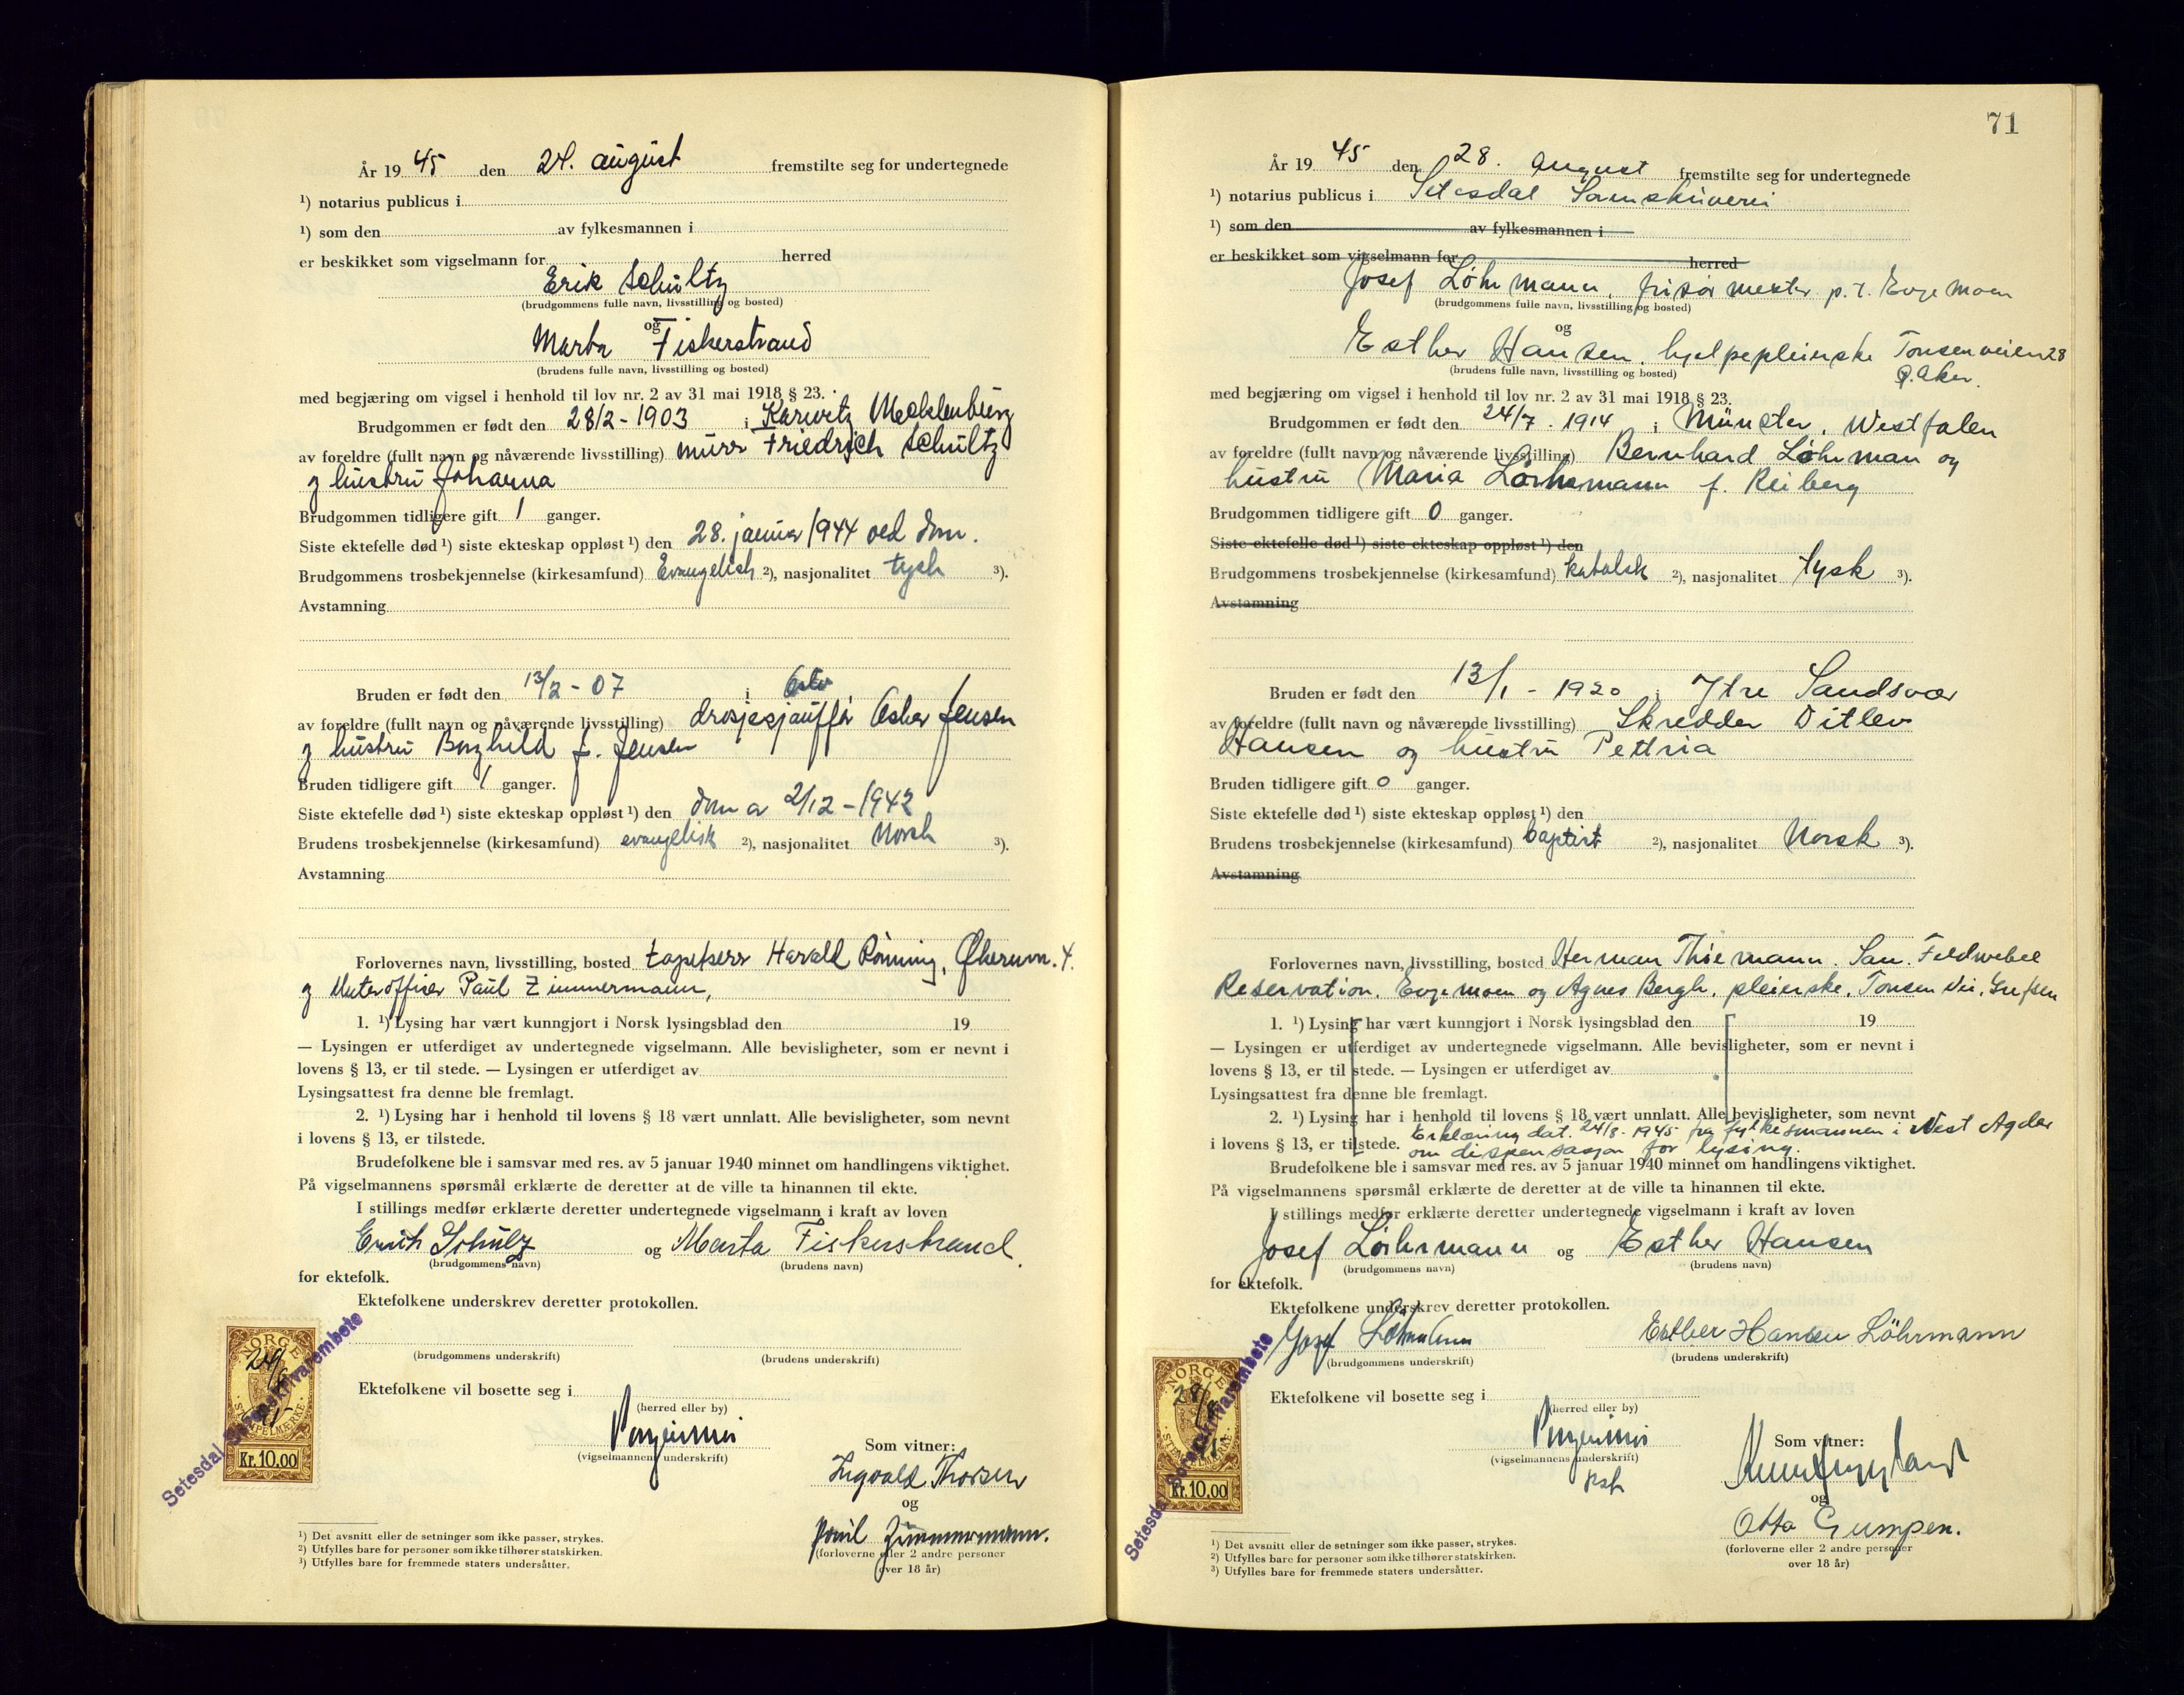 År 19 45 den 24. august fremstilte seg for undertegnede
¹) notarius publicus i
¹) som den av fylkesmannen i
er beskikket som vigselmann for herred
Erik Schultz
(brudgommens fulle navn, livsstilling og bosted)
og
Marta Fiskerstrand
(brudens fulle navn, livsstilling og bosted)
med begjæring om vigsel i henhold til lov nr. 2 av 31 mai 1918 § 23.
Brudgommen er født den 28/2 - 1903 i Karwitz Mecklenburg
av foreldre (fullt navn og nåværende livsstilling) murer Friedrich Schultz
og hustru Johanna
Brudgommen tidligere gift 1 ganger.
Siste ektefelle død ¹) siste ekteskap oppløst ¹) den 28. januar 1944 ved dom.
Brudgommens trosbekjennelse (kirkesamfund) Evangelisk ²), nasjonalitet tysk ³).
Avstamning
Bruden er født den 13/2 - 07 i Oslo
av foreldre (fullt navn og nåværende livsstilling) drosjesjauffør Oskar Jensen
og hustru Borghild f. Jensen
Bruden tidligere gift 1 ganger.
Siste ektefelle død ¹) siste ekteskap oppløst ¹) den dom a 2/12 - 1942
Brudens trosbekjennelse (kirkesamfund) evangelisk ²), nasjonalitet Norsk ³).
Avstamning
Forlovernes navn, livsstilling, bosted tapetserer Harald Rønning, Økernvn. 4.
og Unteroffizier Paul Zimmermann,
1. ¹) Lysing har vært kunngjort i Norsk lysingsblad den 19
— Lysingen er utferdiget av undertegnede vigselmann. Alle bevisligheter, som er nevnt i
lovens § 13, er til stede. — Lysingen er utferdiget av
Lysingsattest fra denne ble fremlagt.
2. ¹) Lysing har i henhold til lovens § 18 vært unnlatt. Alle bevisligheter, som nevnt
i lovens § 13, er tilstede.
Brudefolkene ble i samsvar med res. av 5 januar 1940 minnet om handlingens viktighet.
På vigselmannens spørsmål erklærte de deretter at de ville ta hinannen til ekte.
I stillings medfør erklærte deretter undertegnede vigselmann i kraft av loven
Erich Schulz og Marta Fiskerstrand.
(brudgommens navn) (brudens navn)
for ektefolk.
Ektefolkene underskrev deretter protokollen.
(brudgommens underskrift) (brudens underskrift)
Ektefolkene vil bosette seg i
(herred eller by)
(vigselmannens underskrift)
Som vitner:
Ingvald Thorsen
og
Paul Zimmermann.
(forloverne eller 2 andre personer
over 18 år)
NORGE
STEMPELMERKE
Kr. 10.00
Setesdal Sorenskrivarembete
¹) Det avsnitt eller de setninger som ikke passer, strykes.
²) Utfylles bare for personer som ikke tilhører statskirken.
³) Utfylles bare for fremmede staters undersåtter.
71
År 19 45 den 28. August fremstilte seg for undertegnede
¹) notarius publicus i Setesdal Sorenskriveri
¹) som den av fylkesmannen i
er beskikket som vigselmann for herred
Josef Löhrmann, frisørmester p.t. Evjemoen
(brudgommens fulle navn, livsstilling og bosted)
og
Esther Hansen, hjelpepleierske Tonsenveien 28
Ø. Aker.
(brudens fulle navn, livsstilling og bosted)
med begjæring om vigsel i henhold til lov nr. 2 av 31 mai 1918 § 23.
Brudgommen er født den 24/7 - 1914 i Münster, Westfalen
av foreldre (fullt navn og nåværende livsstilling) Bernhard Löhrman og
hustru Maria Löhrmann f. Reiberg
Brudgommen tidligere gift 0 ganger.
Siste ektefelle død ¹) siste ekteskap oppløst ¹) den
Brudgommens trosbekjennelse (kirkesamfund) katolsk ²), nasjonalitet tysk ³).
Avstamning
Bruden er født den 13/1 - 1920 i Ytre Sandsvær
av foreldre (fullt navn og nåværende livsstilling) Skredder Ditlev
Hansen og hustru Pettria
Bruden tidligere gift 0 ganger.
Siste ektefelle død ¹) siste ekteskap oppløst ¹) den
Brudens trosbekjennelse (kirkesamfund) baptist ²), nasjonalitet Norsk ³).
Avstamning
Forlovernes navn, livsstilling, bosted Herman Thiemann. San. Feldwebel
Reservation. Evjemoen og Agnes Bergh, pleierske, Tonsen Vei, Grefsen
1. ¹) Lysing har vært kunngjort i Norsk lysingsblad den 19
— Lysingen er utferdiget av undertegnede vigselmann. Alle bevisligheter, som er nevnt i
lovens § 13, er til stede. — Lysingen er utferdiget av
Lysingsattest fra denne ble fremlagt.
2. ¹) Lysing har i henhold til lovens § 18 vært unnlatt. Alle bevisligheter, som nevnt
i lovens § 13, er tilstede. Erklæring dat. 24/8 - 1945 fra fylkesmannen i Vest Agder
om dispensasjon for lysing.
Brudefolkene ble i samsvar med res. av 5 januar 1940 minnet om handlingens viktighet.
På vigselmannens spørsmål erklærte de deretter at de ville ta hinannen til ekte.
I stillings medfør erklærte deretter undertegnede vigselmann i kraft av loven
Josef Löhrmann og Esther Hansen
(brudgommens navn) (brudens navn)
for ektefolk.
Ektefolkene underskrev deretter protokollen.
Josef Löhrmann Esther Hansen Löhrmann
(brudgommens underskrift) (brudens underskrift)
Ektefolkene vil bosette seg i
(herred eller by)
(vigselmannens underskrift)
Som vitner:
og
Otto Gumpen.
(forloverne eller 2 andre personer
over 18 år)
NORGE
STEMPELMERKE
Kr. 10.00
Setesdal Sorenskrivarembete
¹) Det avsnitt eller de setninger som ikke passer, strykes.
²) Utfylles bare for personer som ikke tilhører statskirken.
³) Utfylles bare for fremmede staters undersåtter.